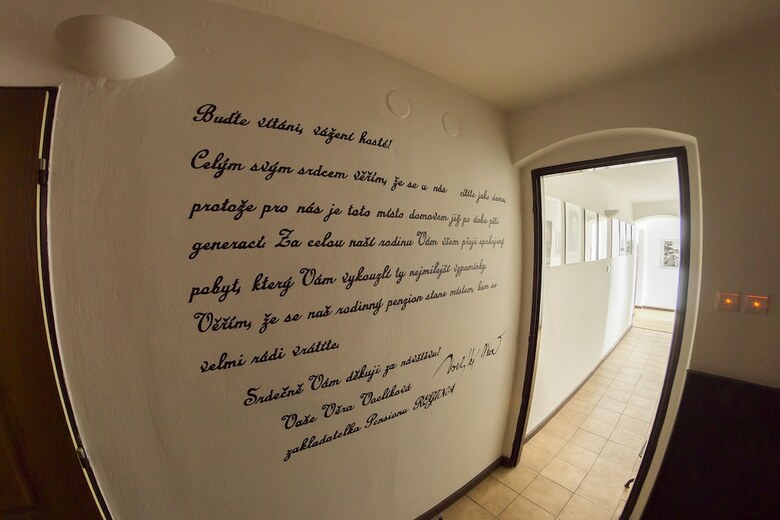 Buďte vítáni, vážení hosté!
Celým svým srdcem věřím, že se u nás cítíte jako doma,
protože pro nás je toto místo domovem již po dobu pěti
generací. Za celou naší rodinu Vám všem přeji spokojený
pobyt, který Vám vykouzlí ty nejmilejší vzpomínky.
Věřím, že se náš rodinný penzion stane místem, kam se
velmi rádi vrátíte.
Srdečně Vám děkuji za návštěvu!
Vaše Věra Vaclíková
zakladatelka Pensionu REGINA